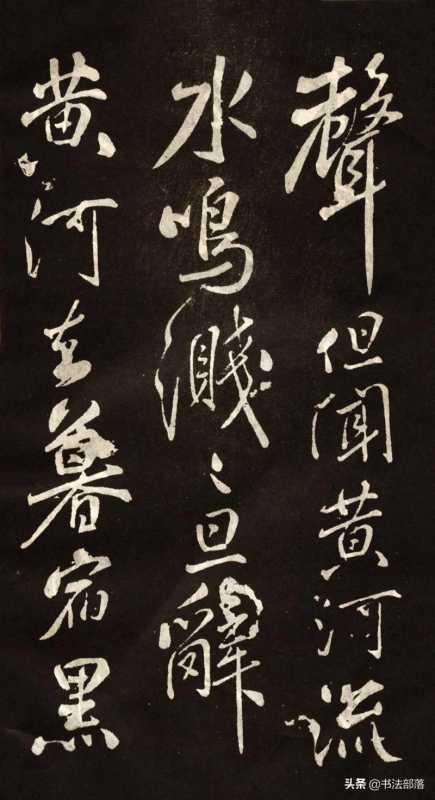 聲但聞黄河流
水鳴濺〻旦辭
黄河去暮宿黑
头条 @书法部落